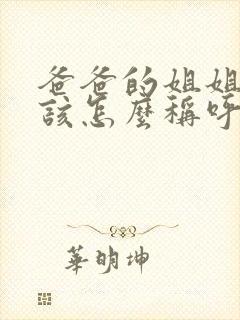 爸爸的姐姐
該怎麼稱呼
華明坤